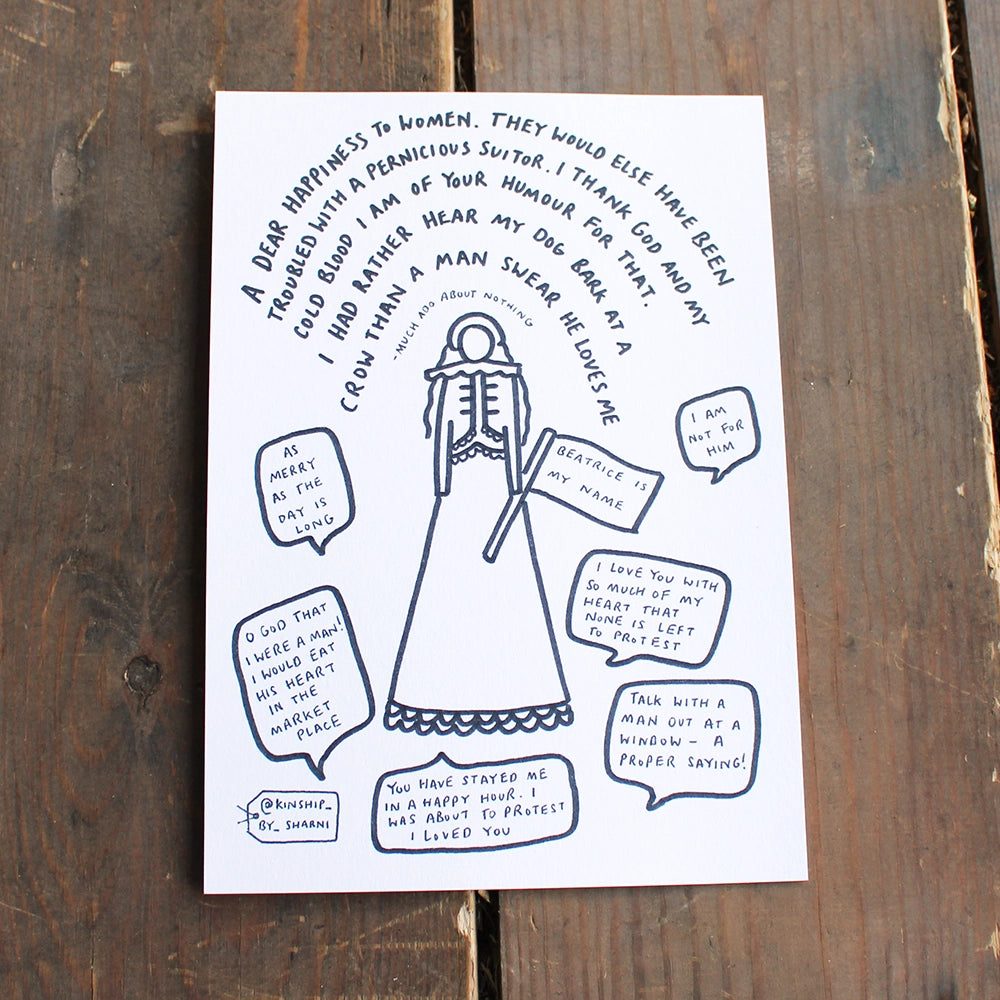 A DEAR HAPPINESS TO WOMEN. THEY WOULD ELSE HAVE BEEN
TROUBLED WITH A PERNICIOUS SUITOR. I THANK GOD AND MY
COLD BLOOD I AM OF YOUR HUMOUR FOR THAT.
I HAD RATHER HEAR MY DOG BARK AT A
CROW THAN A MAN SWEAR HE LOVES ME
-MUCH ADO ABOUT NOTHING
I AM
NOT FOR
HIM
AS
MERRY
AS THE
DAY IS
LONG
BEATRICE IS
MY NAME
I LOVE YOU WITH
SO MUCH OF MY
HEART THAT
NONE IS LEFT
TO PROTEST
O GOD THAT
I WERE A MAN!
I WOULD EAT
HIS HEART
IN THE
MARKET
PLACE
TALK WITH A
MAN OUT AT A
WINDOW - A
PROPER SAYING!
YOU HAVE STAYED ME
IN A HAPPY HOUR. I
WAS ABOUT TO PROTEST
I LOVED YOU
@KINSHIP_
BY_SHARNI